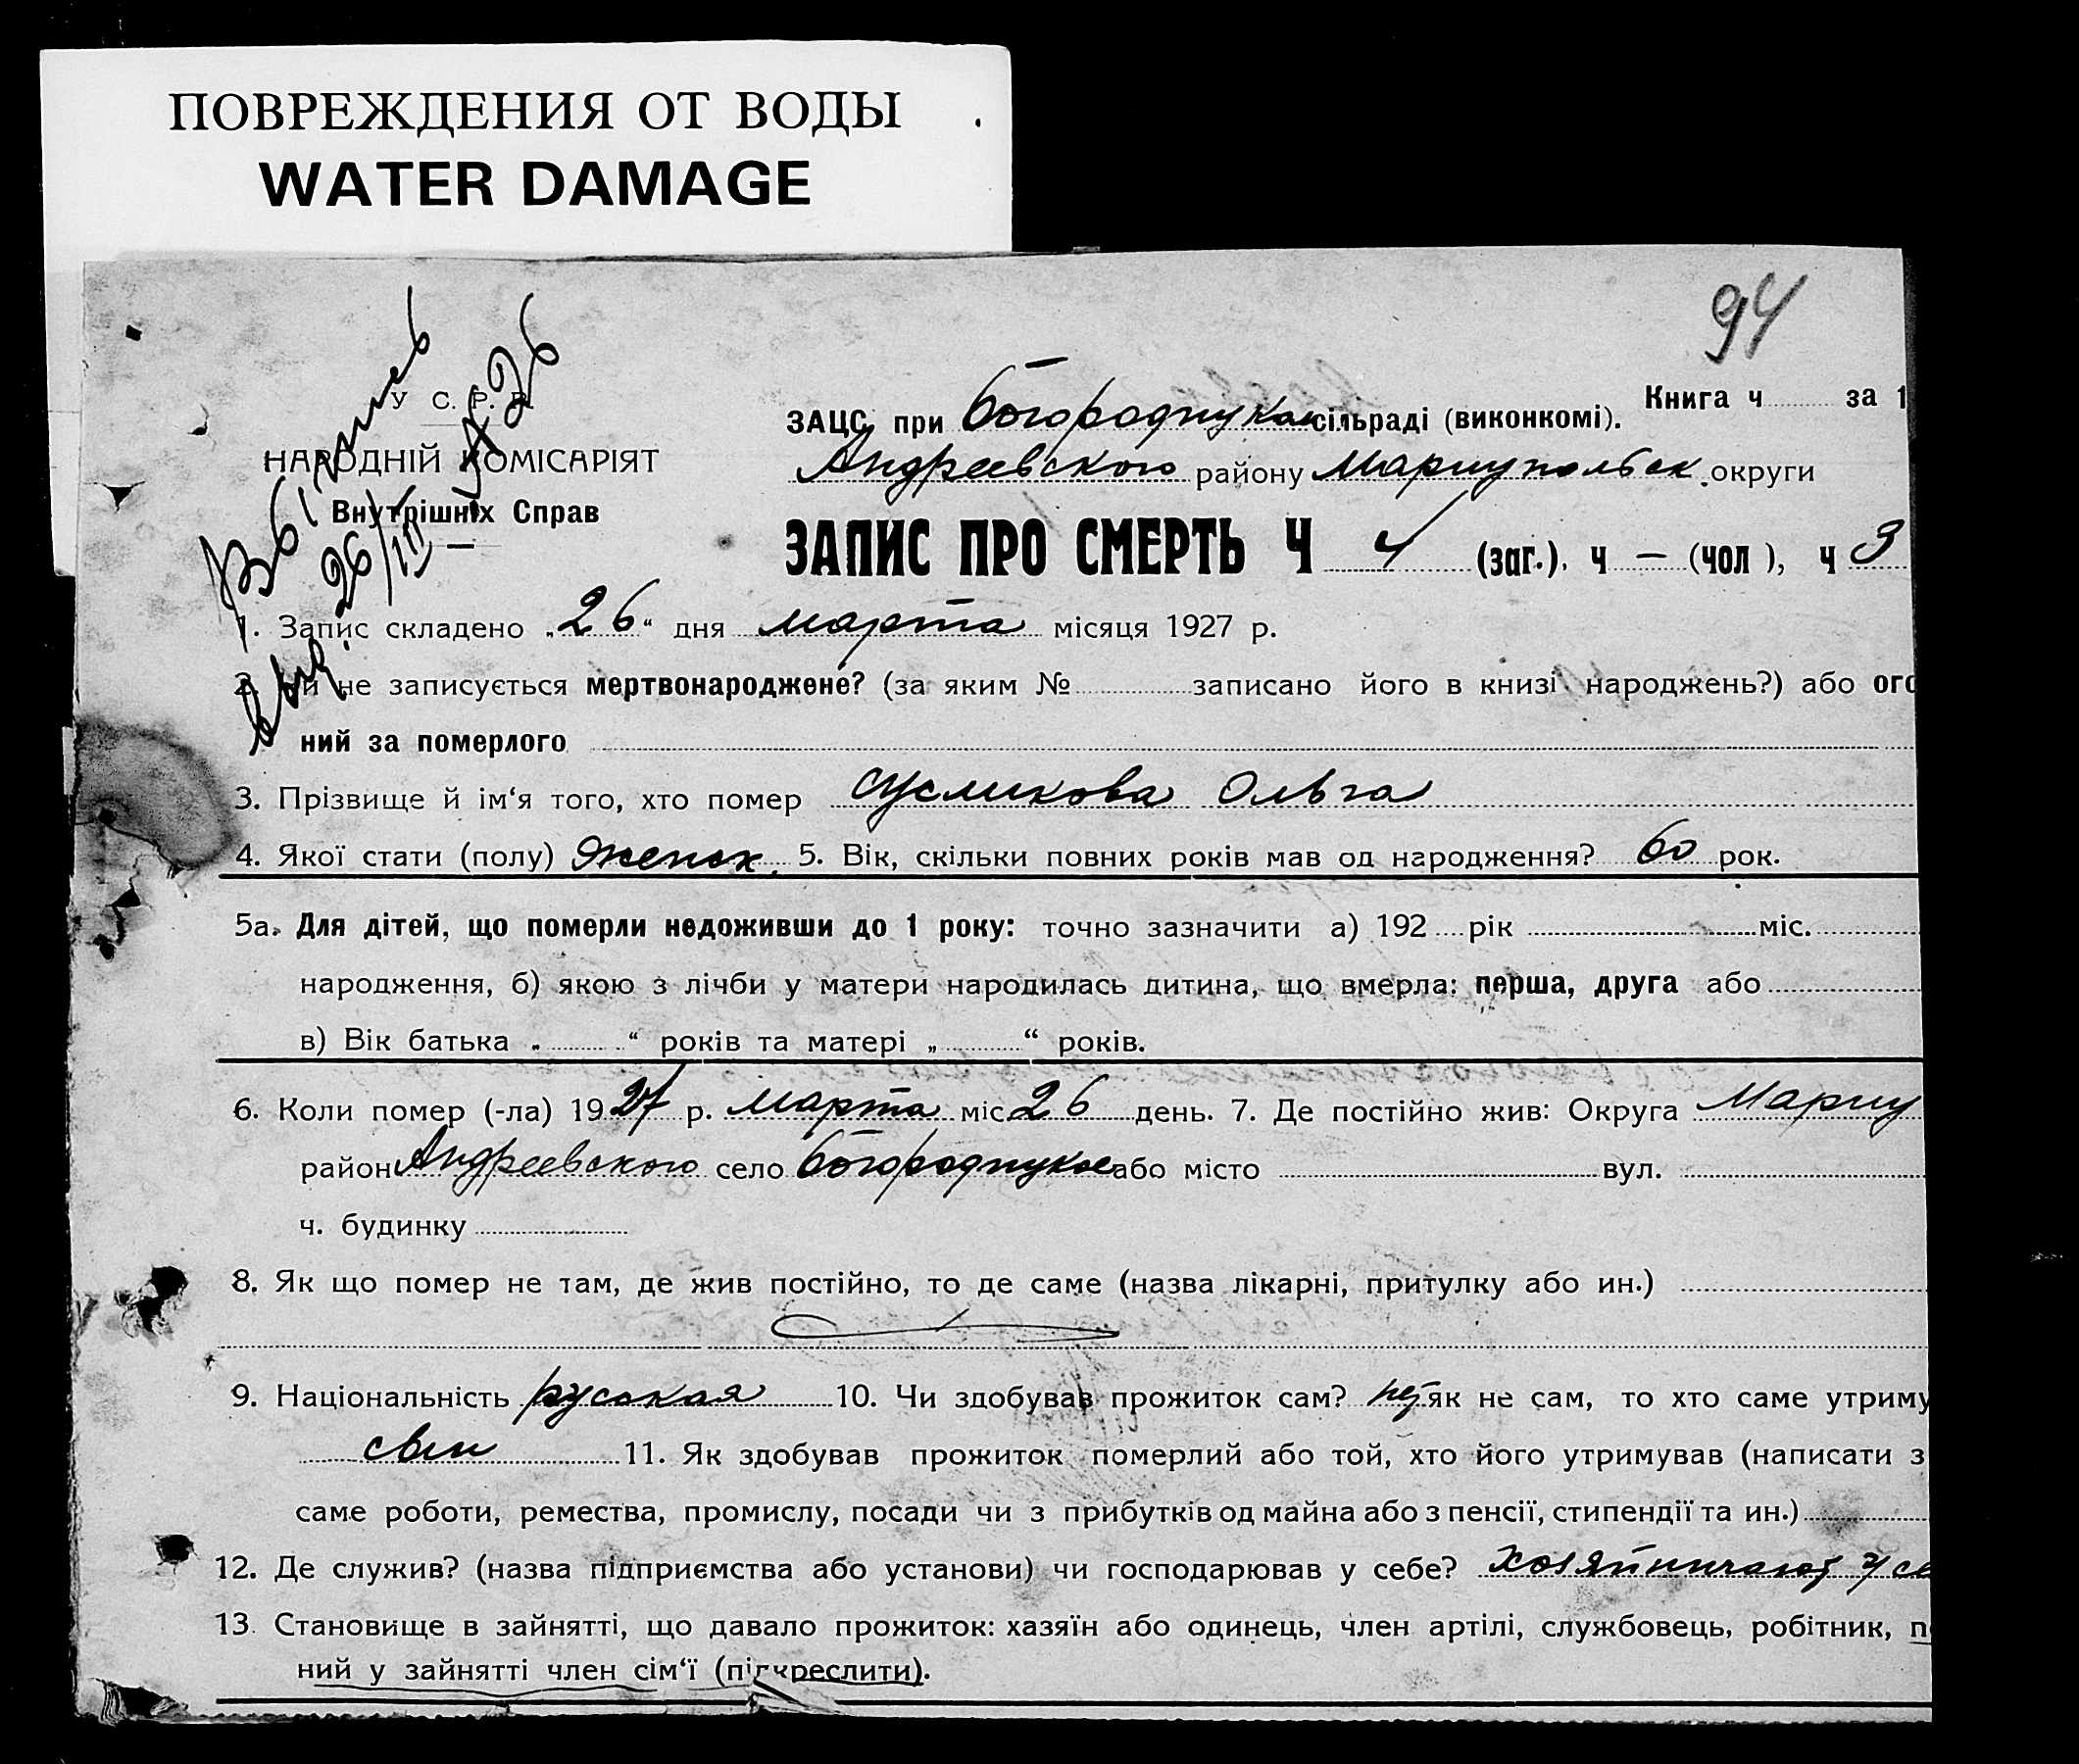 ПОВРЕЖДЕНИЯ ОТ ВОДЫ
WATER DAMAGE
94
У. С. Р. Р.
НАРОДНІЙ КОМІСАРІЯТ
Внутрішніх Справ
26/III
Книга ч за 1
ЗАЦС при сільраді (виконкомі).
Андреевского району Мариупольск. округи
ЗАПИС ПРО СМЕРТЬ Ч 4 (заг.). ч — (чол), ч 3
1. Запис складено „26“ дня марта місяця 1927 р.
2. Чи не записується мертвонароджене? (за яким № записано його в книзі народжень?) або ого
ний за померлого
3. Прізвище й ім‘я того, хто помер Сусликова Ольга
4. Якої стати (полу) женск. 5. Вік, скільки повних років мав од народження? 60 рок.
5а. Для дітей, що померли недоживши до 1 року: точно зазначити а) 192 рік міс.
народження, б) якою з лічби у матери народилась дитина, що вмерла: перша, друга або
в) Вік батька „ “ років та матері „ “ років.
6. Коли помер (-ла) 1927 р. марта міс 26 день. 7. Де постійно жив: Округа Мариу
район Андреевского село або місто вул.
ч. будинку
8. Як що помер не там, де жив постійно, то де саме (назва лікарні, притулку або ин.)
9. Національність русская 10. Чи здобував прожиток сам? нет як не сам, то хто саме утриму
сын 11. Як здобував прожиток померлий або той, хто його утримував (написати з
саме роботи, ремества, промислу, посади чи з прибутків од майна або з пенсії, стипендії та ин.)
12. Де служив? (назва підприємства або установи) чи господарював у себе? Хозяйничают у се
13. Становище в зайнятті, що давало прожиток: хазяїн або одинець, член артілі, службовець, робітник, п
ний у зайнятті член сім‘ї (підкреслити).